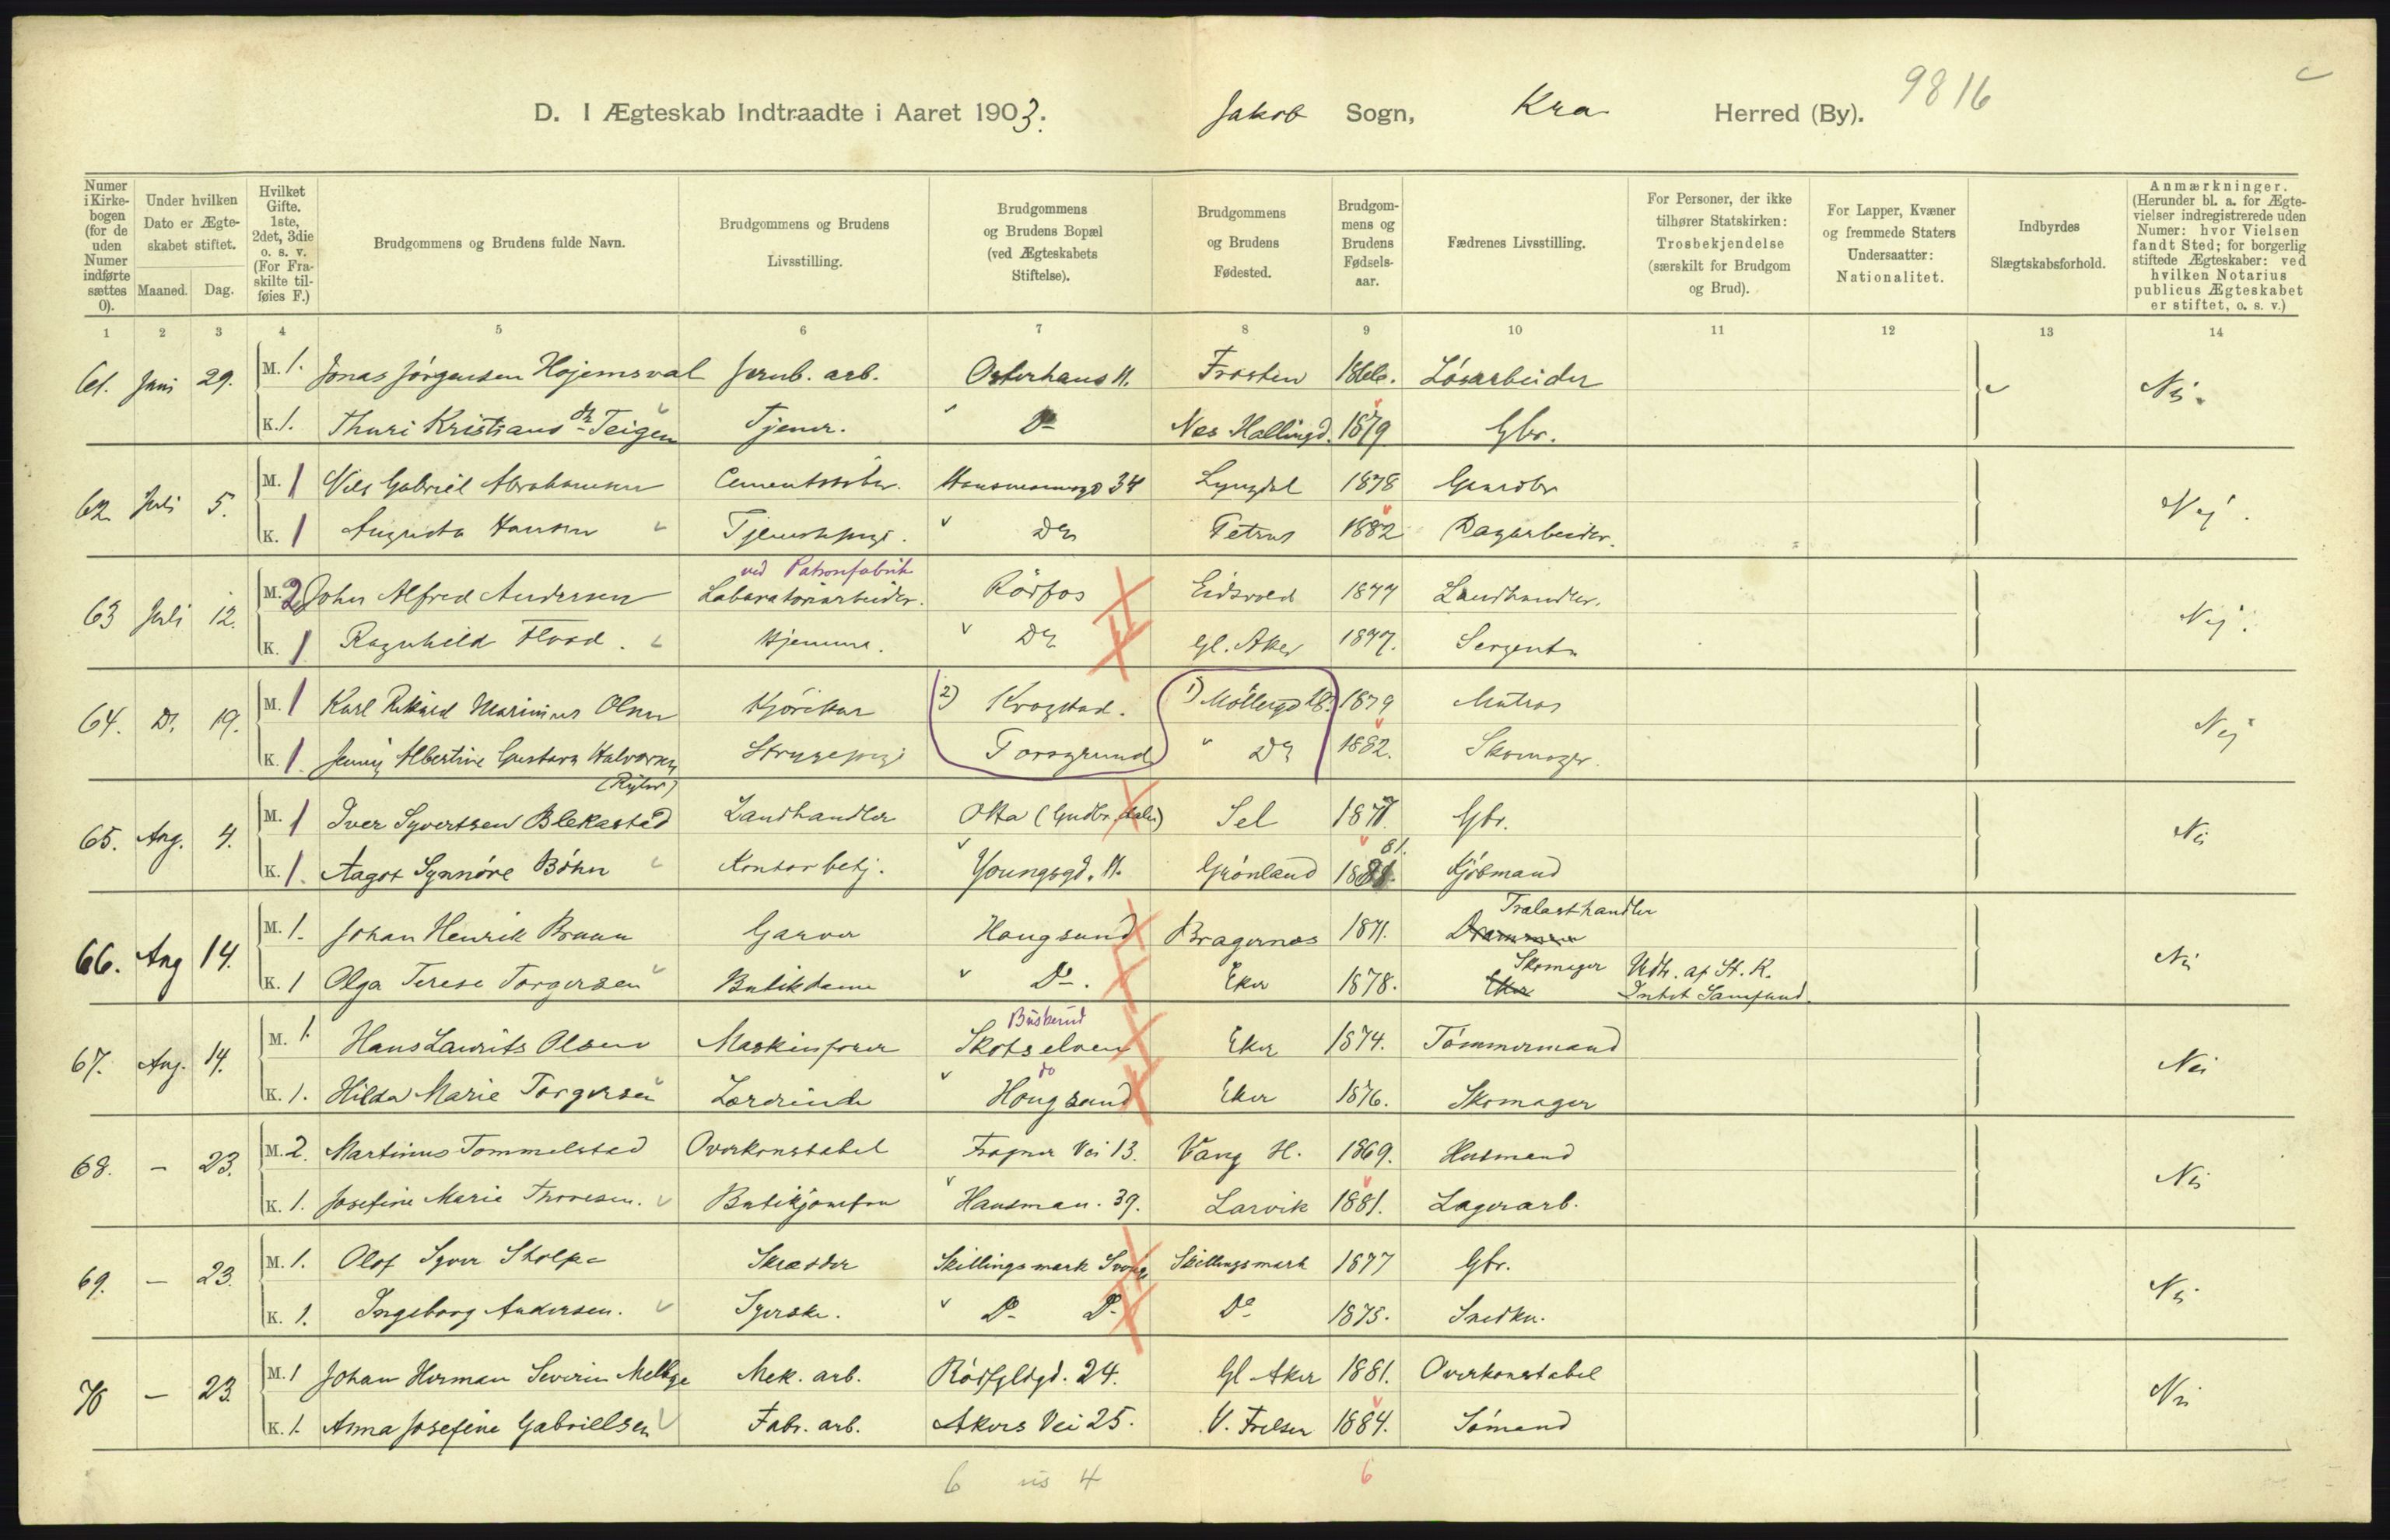 9816
D. I Ægteskab Indtraadte i Aaret 1903. Jakob Sogn, Kra Herred (By).
Numer i Kirkebogen (for de uden Numer indførte sættes 0).
Under hvilken Dato er Ægteskabet stiftet. Maaned. Dag.
Hvilket Gifte. 1ste, 2det, 3die o. s. v. (For Fraskilte tilføies F.)
Brudgommens og Brudens fulde Navn.
Brudgommens og Brudens Livsstilling.
Brudgommens og Brudens Bopæl (ved Ægteskabets Stiftelse).
Brudgommens og Brudens Fødested.
Brudgommens og Brudens Fødselsaar.
Fædrenes Livsstilling.
For Personer, der ikke tilhører Statskirken: Trosbekjendelse (særskilt for Brudgom og Brud).
For Lapper, Kvæner og fremmede Staters Undersaatter: Nationalitet.
Indbyrdes Slægtskabsforhold.
Anmærkninger. (Herunder bl. a. for Ægtevielser indregistrerede uden Numer: hvor Vielsen fandt Sted; for borgerlig stiftede Ægteskaber: ved hvilken Notarius publicus Ægteskabet er stiftet, o. s. v.)
1 2 3 4 5 6 7 8 9 10 11 12 13 14
61. Juni 29. M. 1. Jonas Jørgensen Hojemsval Jernb. arb. Osterhaus 11. Frosten 1866. Løsarbeider Nei.
K. 1. Thuri Kristiansdr Teigen Tjener. Do Nes Hallingd. 1879 Gbr.
62. Juli 5. M. 1 Nils Gabriel Abrahamsen Cementstøber. Hausmannsgd 34 Lyngdal 1878 Gaardbr Nej.
K. 1 Augusta Hansen Tjenestepige. Do Petrus 1882 Dagarbeider.
ved Patronfabrik
63 Juli 12. M. 2 John Alfred Andersen Laboratoriarbeider. Rödfos Eidsvold 1877 Landhandler. Nej.
K. 1 Ragnhild Flood. Hjemme. Do Gl. Aker 1877. Sergent
64. Do 19. M. 1 Karl Rikard Marinius Olsen Kjörekar 2) Kragstad. 1) Möllergd 18. 1879 Matros Nej
K. 1. Jenny Albertine Gustava Halvorsen Strygepige Porsgrund Do 1882. Skomager.
65. Aug. 4. M. 1 Iver Syvertsen Blekastad Landhandler Otta (Gudbr.dalen) Sel 1871. Gbr. Nei
K. 1. Aagot Synnøve Böhn Kontorbetj. Youngsgd. 11. Grønland 1881. 81. Kjøbmand
Trælasthandler
66. Aug 14. M. 1. Johan Henrik Bruun Garver Hougsund Bragernæs 1871. Drammen Nei
Skomager Udtr. af St. K.
K. 1 Olga Terese Torgersen Butikdame Do. Eker 1878. Eker Intet Samfund.
Buskerud
67. Aug. 14. M. 1. Hans Laurits Olsen Maskinfører Skotselven Eker 1874. Tømmermand Nei
do
K. 1. Hilda Marie Torgersen Lærerinde Hougsund Eker 1876. Skomager
68. – 23. M. 2. Martinius Tommelstad Overkonstabel Frogner Vei 13. Vang H. 1869. Husmand Nei
K. 1. Josefine Marie Thoresen. Butikjomfru Hausman. 39. Larvik 1881. Lagerarb.
69. – 23. M. 1. Olof Syver Stolpe Skrædder Skillingsmark Sverige Skillingsmark 1877 Gbr. Nei
K. 1. Ingeborg Andersen. Syerske. Do Do Do 1875. Snedker.
70 – 23 M. 1 Johan Herman Severin Melbye Mek. arb. Rödfyldgd. 24. Gl Aker 1881. Overkonstabel Nei
K. 1. Anna Josefine Gabrielsen Fabr. arb. Akers Vei 25. V. Frelser 1884. Sømand
6 4 6